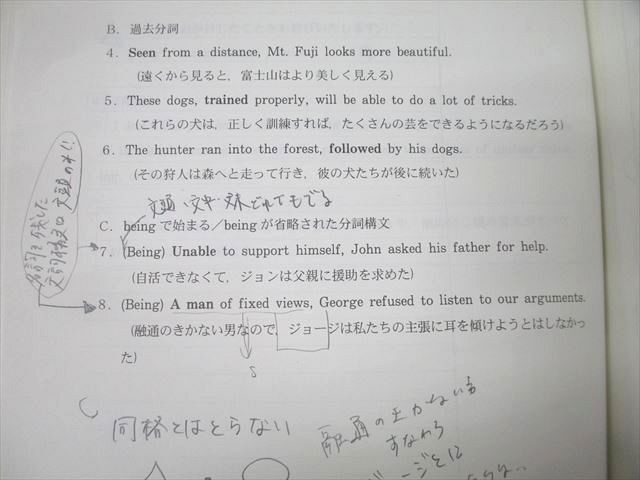 B. 過去分詞
4. Seen from a distance, Mt. Fuji looks more beautiful.
(遠くから見ると，富士山はより美しく見える)
5. These dogs, trained properly, will be able to do a lot of tricks.
(これらの犬は，正しく訓練すれば，たくさんの芸をできるようになるだろう)
6. The hunter ran into the forest, followed by his dogs.
(その狩人は森へと走って行き，彼の犬たちが後に続いた)
文頭・文中・文末どれでもでる
C. beingで始まる／beingが省略された分詞構文
7. (Being) Unable to support himself, John asked his father for help.
(自活できなくて，ジョンは父親に援助を求めた)
8. (Being) A man of fixed views, George refused to listen to our arguments.
(融通のきかない男なので，ジョージは私たちの主張に耳を傾けようとはしなかっ
た)
S
同格とはとらない
融通のきかない男
すなわち
ジョージは